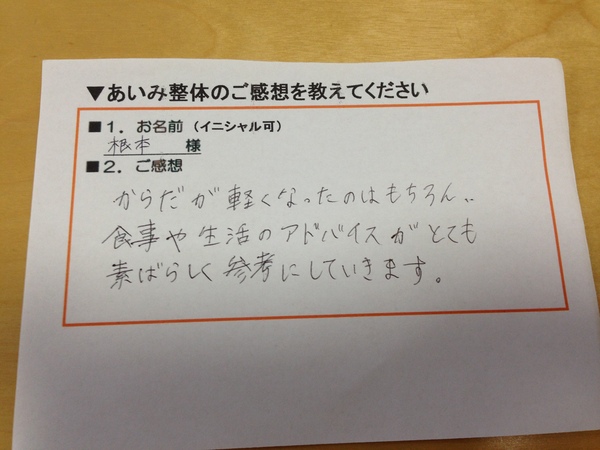 ▼あいみ整体のご感想を教えてください
■1．お名前（イニシャル可）
根本 様
■2．ご感想
からだが軽くなったのはもちろん、
食事や生活のアドバイスがとても
素ばらしく参考にしていきます。